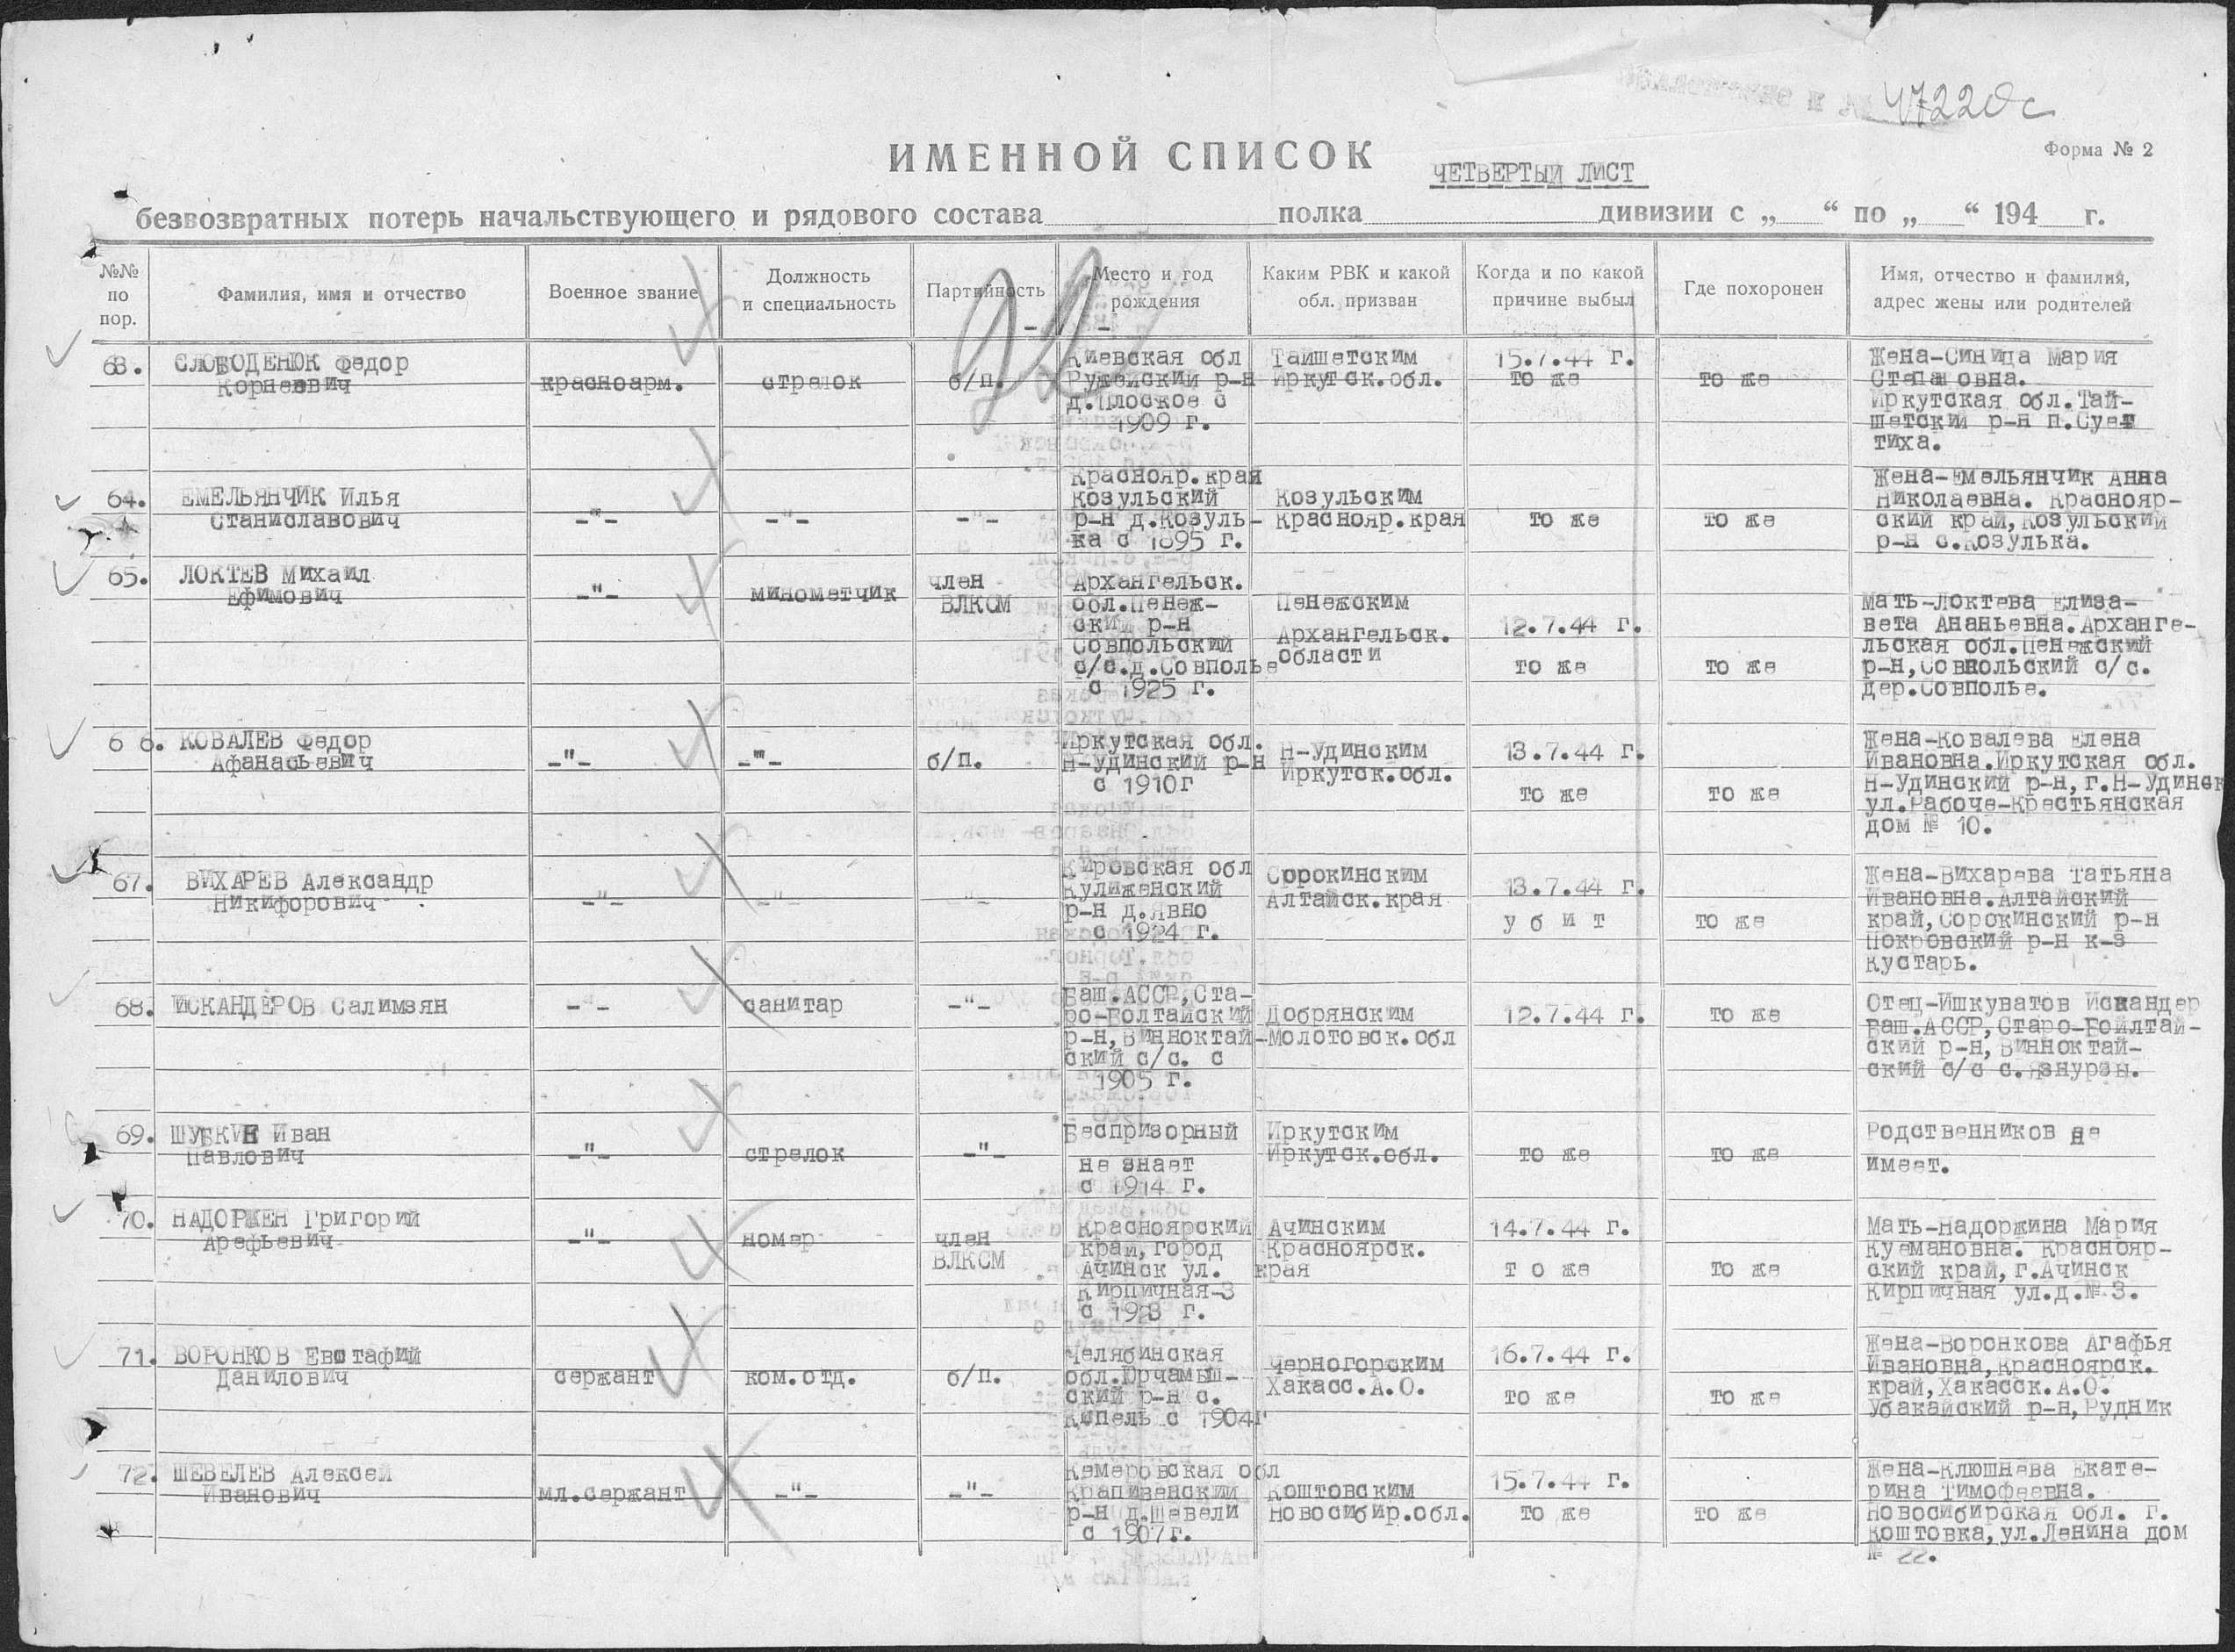 47220с
ИМЕННОЙ СПИСОК
ЧЕТВЕРТЫЙ ЛИСТ
Форма № 2
безвозвратных потерь начальствующего и рядового состава полка дивизии с „ “ по „ “ 194 г.
№№ по пор.
Фамилия, имя и отчество
Военное звание
Должность и специальность
Партийность
Место и год рождения
Каким РВК и какой обл. призван
Когда и по какой причине выбыл
Где похоронен
Имя, отчество и фамилия, адрес жены или родителей
63. СЛОБОДЕНЮК Федор
Корнеевич
красноарм.
стрелок
б/п.
Киевская обл
Ружейский р-н
д.Плоское с
1909 г.
Тайшетским
Иркутск.обл.
15.7.44 г.
то же
то же
Жена-Синица Мария
Степановна.
Иркутская обл.Тай-
шетский р-н п.Сует
тиха.
64. ЕМЕЛЬЯНЧИК Илья
Станиславович
-"-
-"-
-"-
Краснояр.края
Козульский
р-н д.Козуль-
ка с 1895 г.
Козульским
Краснояр.края
то же
то же
Жена-Емельянчик Анна
Николаевна. Краснояр-
ский край,Козульский
р-н с.Козулька.
65. ЛОКТЕВ Михаил
Ефимович
-"-
минометчик
член
ВЛКСМ
Архангельск.
обл.Пенеж-
ский р-н
Совпольский
с/с.д.Совполье
с 1925 г.
Пенежским
Архангельск.
области
12.7.44 г.
то же
то же
Мать-Локтева Елиза-
вета Ананьевна.Арханге-
льская обл.Пенежский
р-н,Совпольский с/с.
дер.Совполье.
66. КОВАЛЕВ Федор
Афанасьевич
-"-
-"-
б/п.
Иркутская обл.
Н-Удинский р-н
с 1910г
Н-Удинским
Иркутск.обл.
13.7.44 г.
то же
то же
Жена-Ковалева Елена
Ивановна.Иркутская обл.
Н-Удинский р-н,г.Н-Удинск
ул.Рабоче-Крестьянская
дом № 10.
67. ВИХАРЕВ Александр
Никифорович
-"-
-"-
-"-
Кировская обл
Кулиженский
р-н д.Явно
с 1924 г.
Сорокинским
Алтайск.края
13.7.44 г.
у б и т
то же
Жена-Вихарева Татьяна
Ивановна.Алтайский
край,Сорокинский р-н
Покровский р-н к-з
Кустарь.
68. ИСКАНДЕРОВ Салимзян
-"-
санитар
-"-
Баш.АССР,Ста-
ро-Болтайский
р-н,Винноктай-
ский с/с. с
1905 г.
Добрянским
Молотовск.обл
12.7.44 г.
то же
Отец-Ишкуватов Искандер
Баш.АССР,Старо-Бойлтай-
ский р-н,Винноктай-
ский с/с с.
69. ШУБКИН Иван
Павлович
-"-
стрелок
-"-
Беспризорный
не знает
с 1914 г.
Иркутским
Иркутск.обл.
то же
то же
Родственников не
имеет.
70. НАДОРЖЕН Григорий
Арефьевич
-"-
номер
член
ВЛКСМ
Красноярский
край,город
Ачинск ул.
Кирпичная-3
с 1923 г.
Ачинским
Красноярск.
края
14.7.44 г.
т о же
то же
Мать-Надоржина Мария
Куемановна. Краснояр-
ский край,г.Ачинск
Кирпичная ул.д.№ 3.
71. ВОРОНКОВ Евстафий
Данилович
сержант
ком.отд.
б/п.
Челябинская
обл.Юрчамыш-
ский р-н с.
Кипель с 1904г
Черногорским
Хакасс.А.О.
16.7.44 г.
то же
то же
Жена-Воронкова Агафья
Ивановна,Красноярск.
край,Хакасск.А.О.
Убакайский р-н,Рудник
72. ШЕВЕЛЕВ Алексей
Иванович
мл.сержант
-"-
-"-
Кемеровская обл
Крапивенский
р-н д.Шевели
с 1907г.
Коштовским
Новосибир.обл.
15.7.44 г.
то же
то же
Жена-Клюшнева Екате-
рина Тимофеевна.
Новосибирская обл. г.
Коштовка,ул.Ленина дом
№ 22.